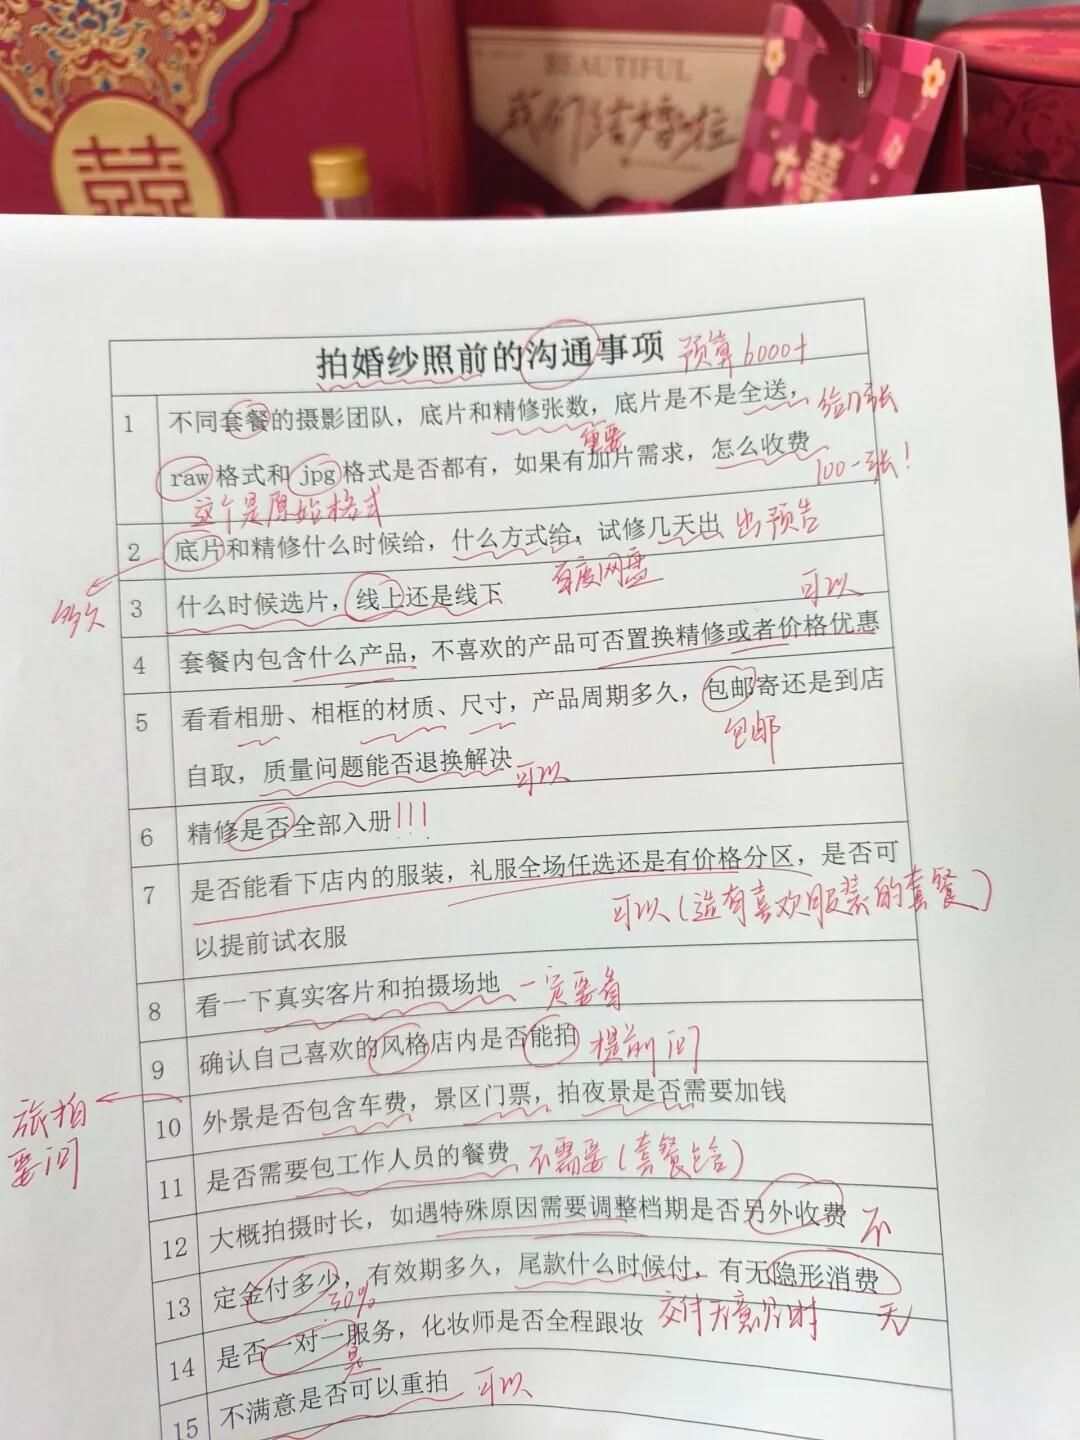 囍
BEAUTIFUL
我们结婚啦
大囍
拍婚纱照前的沟通事项 预算6000+
1 不同套餐的摄影团队，底片和精修张数，底片是不是全送，
重要
raw格式和jpg格式是否都有，如果有加片需求，怎么收费 100一张！
这个是原始格式
2 底片和精修什么时候给，什么方式给，试修几天出 出预告
百度网盘
3 什么时候选片，线上还是线下 可以
4 套餐内包含什么产品，不喜欢的产品可否置换精修或者价格优惠
5 看看相册、相框的材质、尺寸，产品周期多久，包邮寄还是到店
包邮
自取，质量问题能否退换解决 可以
6 精修是否全部入册!!!
7 是否能看下店内的服装，礼服全场任选还是有价格分区，是否可
可以（选有喜欢服装的套餐）
以提前试衣服
8 看一下真实客片和拍摄场地 一定要看
9 确认自己喜欢的风格店内是否能拍 提前问
旅拍
要问
10 外景是否包含车费，景区门票，拍夜景是否需要加钱
11 是否需要包工作人员的餐费 不需要（套餐包含）
12 大概拍摄时长，如遇特殊原因需要调整档期是否另外收费 不
13 定金付多少，有效期多久，尾款什么时候付，有无隐形消费
30% 无
14 是否一对一服务，化妆师是否全程跟妆
是
15 不满意是否可以重拍 可以